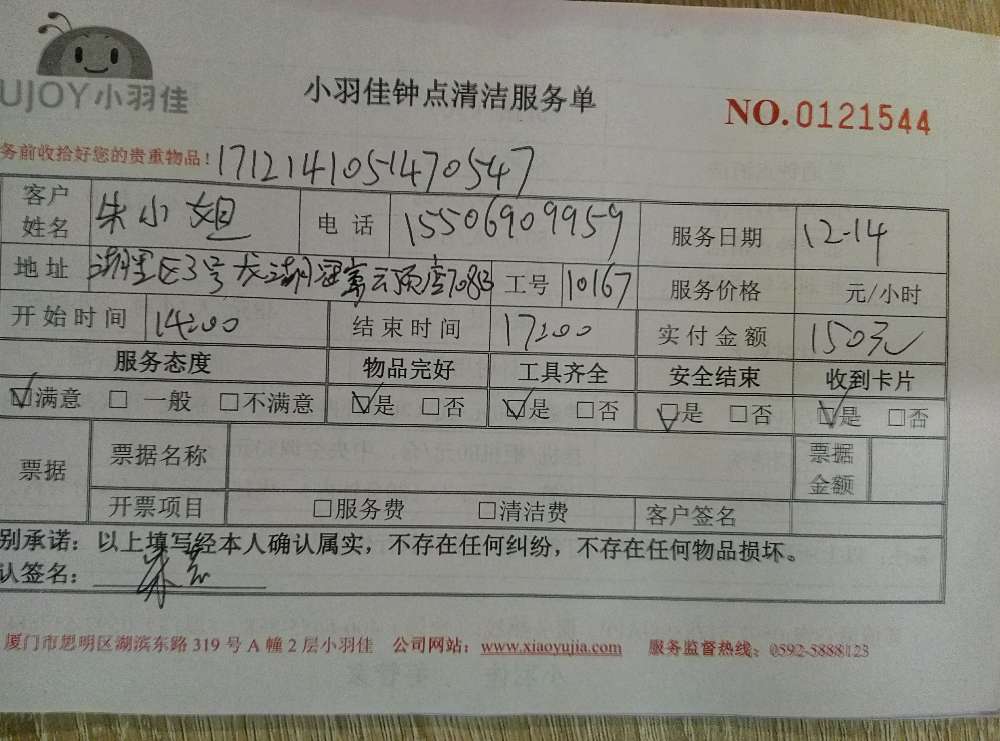 UJOY小羽佳
小羽佳钟点清洁服务单
NO.0121544
务前收拾好您的贵重物品！1712141051470547
客户姓名 朱小姐 电话 15506909959 服务日期 12-14
地址 湖里区3号龙湖 云顶 708B 工号 10167 服务价格 元/小时
开始时间 14:00 结束时间 17:00 实付金额 150元
服务态度 物品完好 工具齐全 安全结束 收到卡片
☑满意 □一般 □不满意 ☑是 □否 ☑是 □否 ☑是 □否 ☑是 □否
票据 票据名称 票据金额
开票项目 □服务费 □清洁费 客户签名
别承诺：以上填写经本人确认属实，不存在任何纠纷，不存在任何物品损坏。
认签名：朱
厦门市思明区湖滨东路 319 号 A 幢 2 层小羽佳 公司网站：www.xiaoyujia.com 服务监督热线：0592-5888123